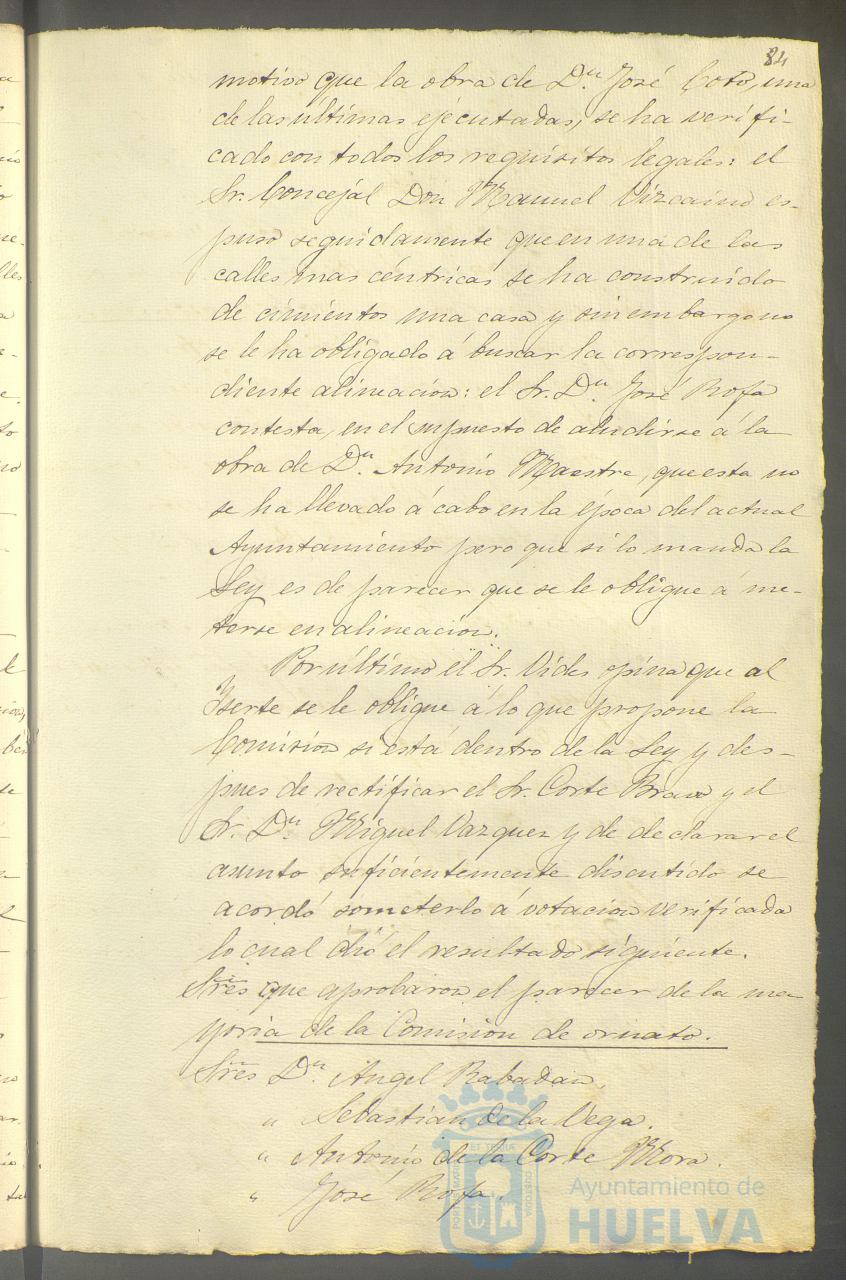 84
motivo que la obra de Dn. José Coto, una
de las ultimas ejecutadas, se ha verifi-
cado con todos los requisitos legales: el
Sr. Concejal Don Manuel Vizcaino es-
puso seguidamente que en una de las
calles mas céntricas se ha construido
de cimientos una casa y sin embargo no
se le ha obligado á buscar la correspon-
diente alineacion: el Sr. Dn. José Rofa
contesta, en el supuesto de aludirse á la
obra de Dn. Antonio Maestre, que esta no
se ha llevado á cabo en la época del actual
Ayuntamiento pero que si lo manda la
Ley es de parecer que se le obligue á me-
terse en alineacion.
Por último el Sr. Vides opina que al
Yserte se le obligue á lo que propone la
Comision si está dentro de la Ley y des-
pues de rectificar el Sr. Corte Bravo y el
Sr. Dn. Miguel Vazquez y de declarar el
asunto suficientemente discutido se
acordó someterlo á votacion verificada
lo cual dió el resultado siguiente.
Sres que aprobaron el parecer de la ma
yoria de la Comision de ornato.
Sres Dn. Angel Rabadan.
" Sebastian de la Vega.
" Antonio de la Corte Mora.
" José Rofa.
Ayuntamiento de
HUELVA